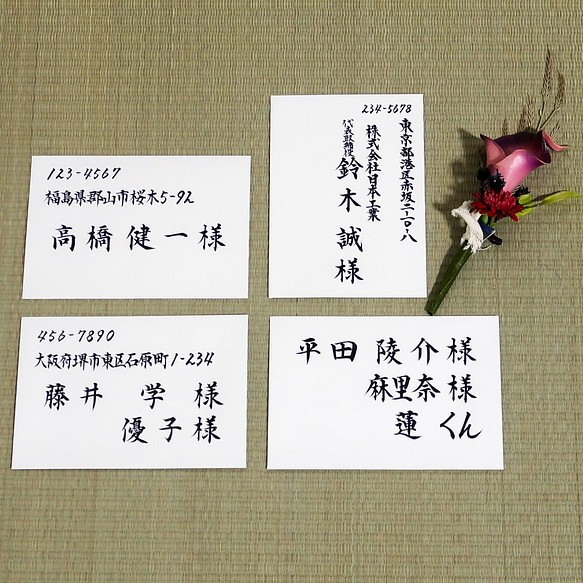 123-4567
福島県郡山市桜木5-92
高橋健一様
234-5678
東京都港区赤坂二-一〇-八
株式会社日本工業
代表取締役
鈴木誠様
456-7890
大阪府堺市東区石原町1-234
藤井 学 様
優子様
平田 陵介様
麻里奈様
蓮 くん